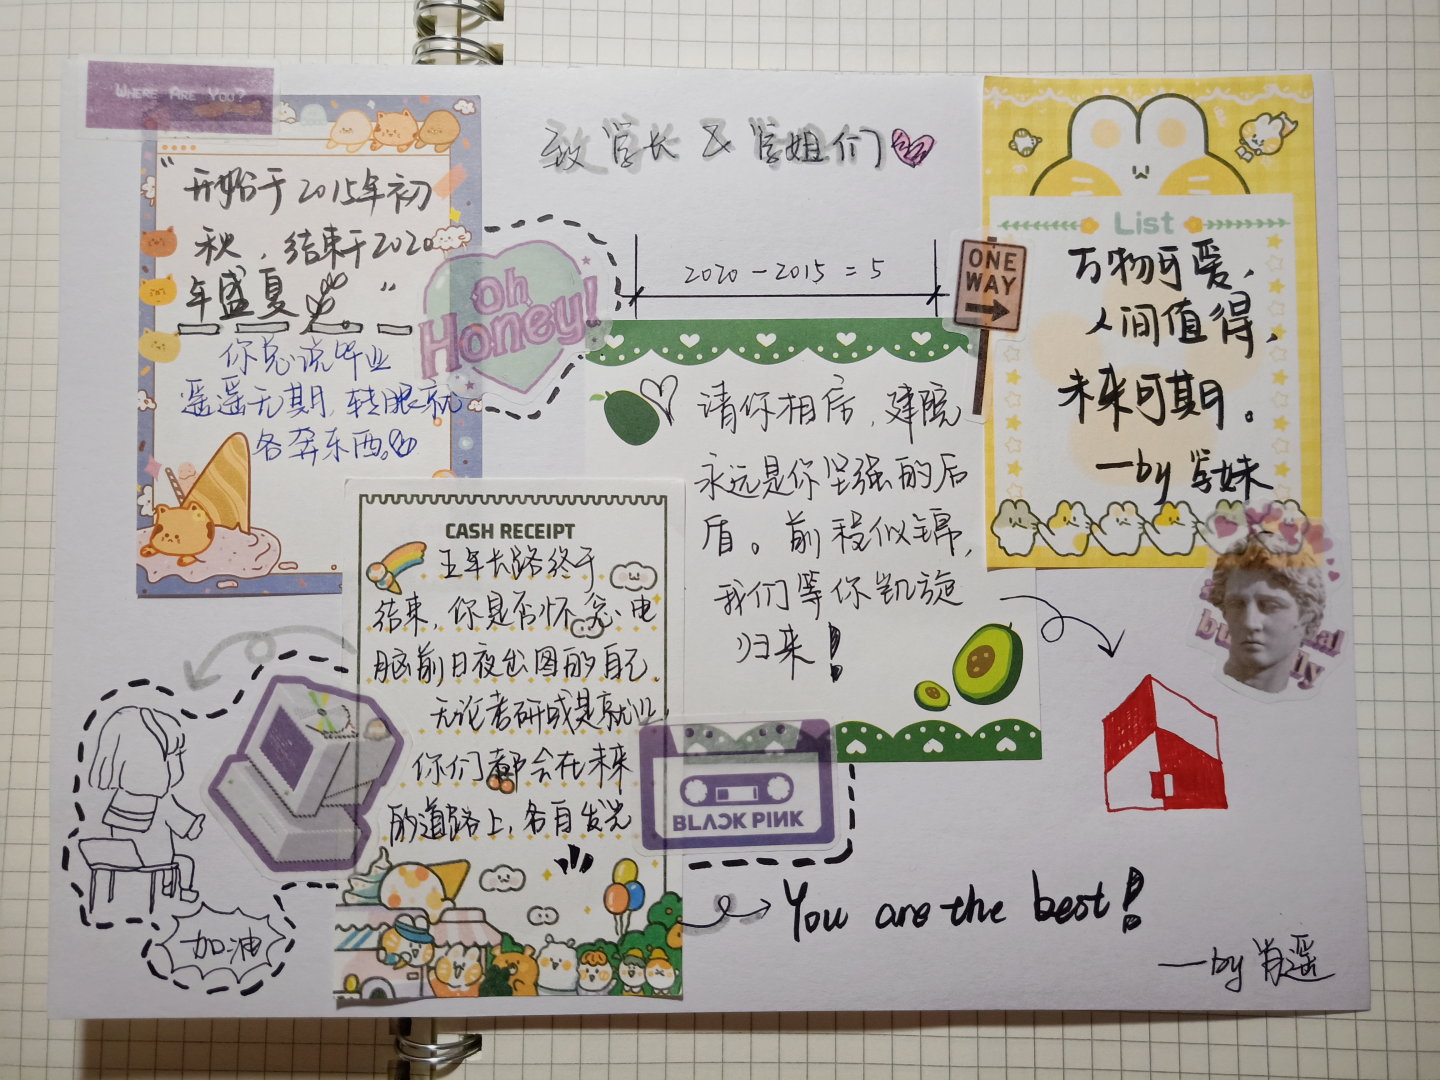 WHERE ARE YOU?
致学长&学姐们
“开始于2015年初
秋，结束于2020
年盛夏。”
你总说毕业
遥遥无期，转眼就
各奔东西。
Oh
Honey!
2020-2015=5
ONE
WAY
请你相信，建院
永远是你坚强的后
盾。前程似锦，
我们等你凯旋
归来！
List
万物可爱，
人间值得，
未来可期。
—by 学妹
CASH RECEIPT
五年长路终于
结束，你是否怀念电
脑前日夜出图的自己，
无论考研或是就业
你们都会在未来
的道路上，各自发光
BLACKPINK
加油
You are the best!
—by 肖遥